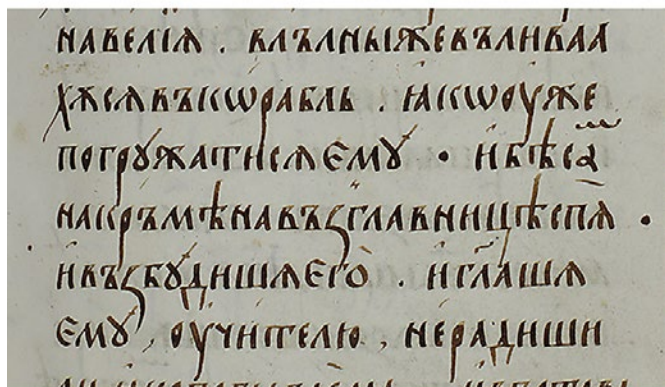 навелїѧ . влълныжевъливаа
хѫсѧвъкѡрабль . ꙗкѡоуже
погрꙋжатисѧємꙋ · ибѣсаⷨ
накръмѣнавъꙁглавницѣспѧ ·
ивъꙁбꙋдишѧєго . игл҃ашѧ
ємꙋ , оучителю , нерадиши